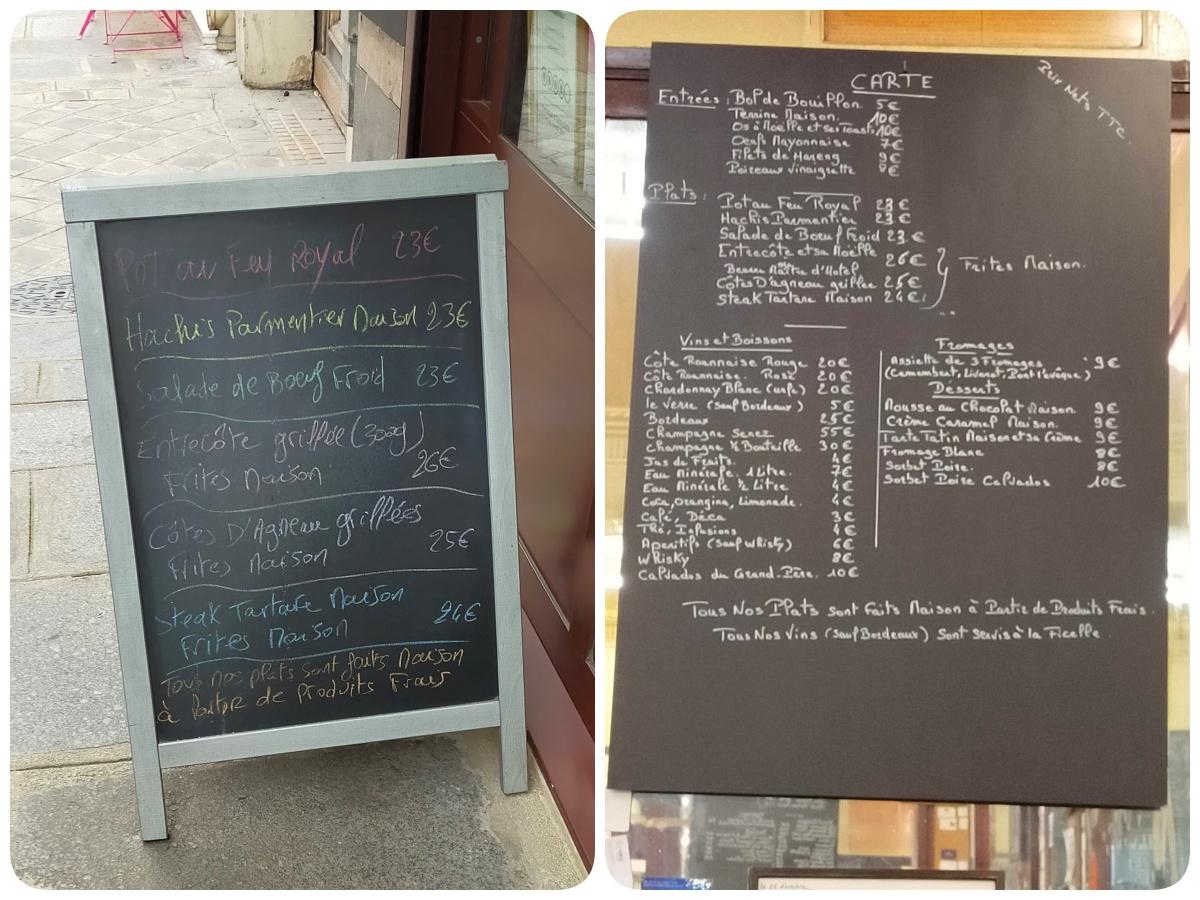 Pot au Feu Royal 23€
Hachis Parmentier Maison 23€
Salade de Boeuf Froid 23€
Entrecôte grillée (300g)
Frites Maison 26€
Côtes D'Agneau grillées
Frites Maison 25€
Steak Tartare Maison
Frites Maison 24€
Tous nos plats sont faits Maison
à Partir de Produits Frais
CARTE
Prix Nets TTC.
Entrées : Bol de Bouillon. 5€
Terrine Maison. 10€
Os à Moëlle et ses Toasts 10€
Oeufs Mayonnaise 7€
Filets de Hareng 9€
Poireaux vinaigrette 8€
Plats : Pot au Feu Royal 23€
Hachis Parmentier 23€
Salade de Boeuf Froid 23€
Entrecôte et sa Moëlle
ou 26€
Beurre Maître d'Hotel
Frites Maison.
Côtes D'agneau grillée 25€
Steak Tartare Maison 24€
Vins et Boissons
Côte Roannaise Rouge 20€
Côte Roannaise. Rosé 20€
Chardonnay Blanc 20€
le Verre (Sauf Bordeaux) 5€
Bordeaux 25€
Champagne Senez 55€
Champagne ½ Bouteille 30€
Jus de Fruits. 4€
Eau Minérale. 1 Litre. 7€
Eau Minérale ½ Litre 4€
Coca, Orangina, Limonade. 4€
Café, Déca 3€
Thé, Infusions 4€
Aperitifs (Sauf Whisky) 6€
Whisky 8€
Calvados du Grand-Père. 10€
Fromages
Assiette de 3 Fromages 9€
(Camembert, Livarot, Pont l'évêque)
Désserts
Mousse au Chocolat Maison. 9€
Crème Caramel Maison. 9€
Tarte Tatin Maison et sa Crème 9€
Fromage Blanc 8€
Sorbet Poire. 8€
Sorbet Poire Calvados 10€
Tous Nos Plats sont Faits Maison à Partir de Produits Frais.
Tous Nos Vins (Sauf Bordeaux) Sont servis à la Ficelle.